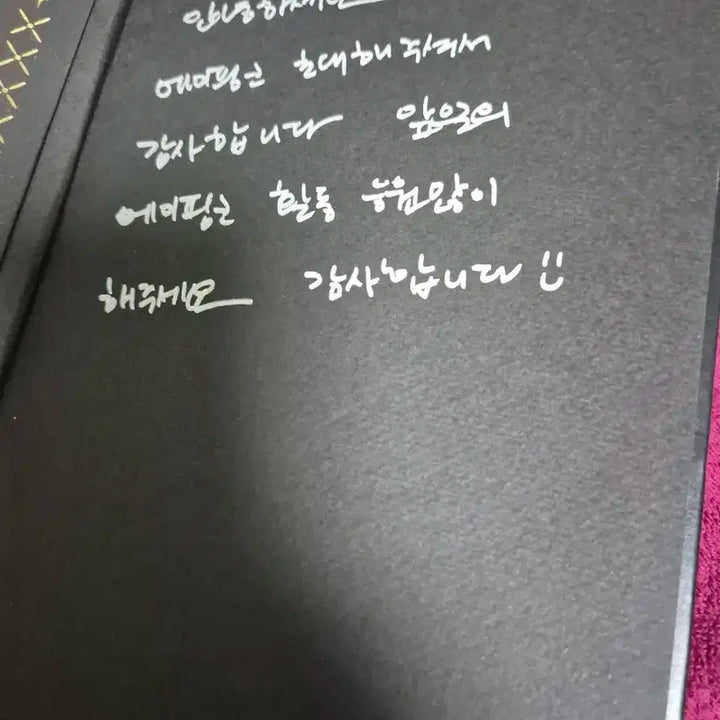 안녕하세요
에이핑크 초대해주셔서
감사합니다 앞으로의
에이핑크 활동 응원많이
해주세요 감사합니다 !!